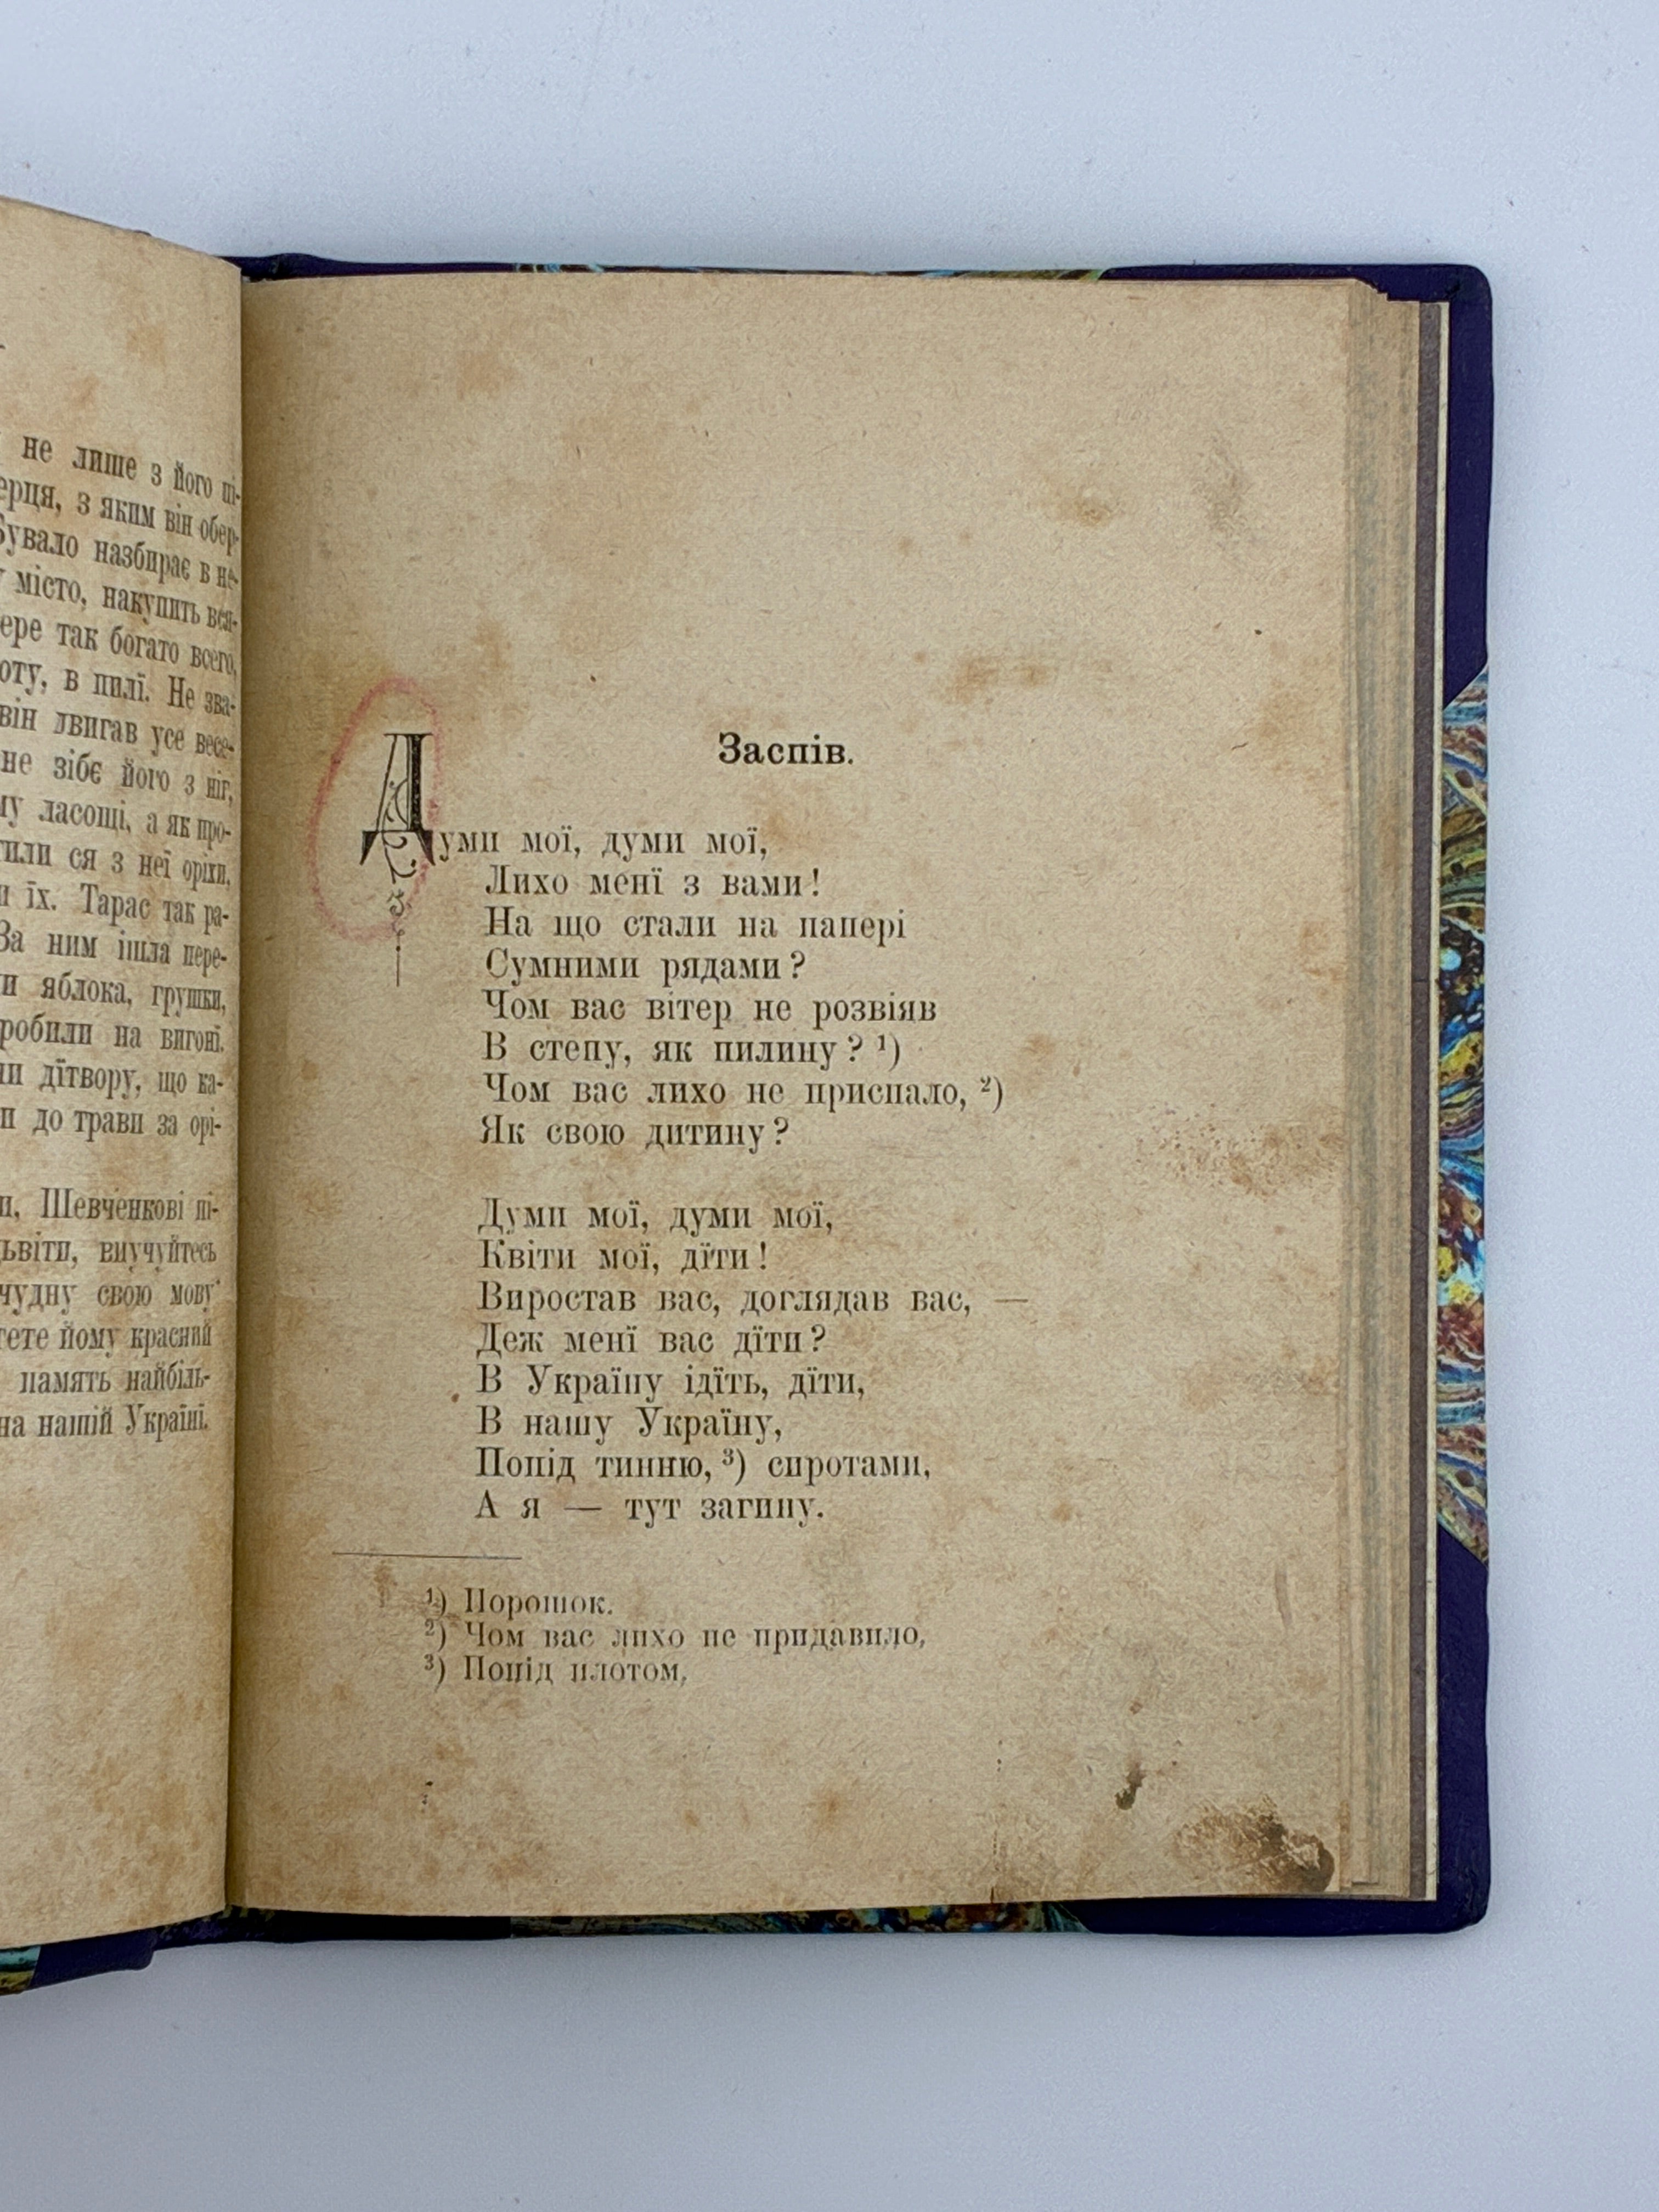 не лише з його пі-
з яким він обер-
назбирає в не-
місто, накупить вся-
так богато всего,
в пилї. Не зва-
він двигав усе весе-
не зібє його з ніг,
ласощі, а як про-
ся з неї оріхи,
їх. Тарас так ра-
За ним ішла пере-
яблока, грушки,
робили на вигонї.
дїтвору, що ка-
до трави за орі-
Шевченкові пі-
виучуйтесь
чудну свою мову
йому красний
память найбіль-
на нашій Україні.
Заспів.
Думи мої, думи мої,
Лихо менї з вами!
На що стали на папері
Сумними рядами?
Чом вас вітер не розвіяв
В степу, як пилину? ¹)
Чом вас лихо не приспало, ²)
Як свою дитину?
Думи мої, думи мої,
Квіти мої, дїти!
Виростав вас, доглядав вас, —
Деж менї вас дїти?
В Україну ідїть, дїти,
В нашу Україну,
Попід тинню, ³) сиротами,
А я — тут загину.
¹) Порошок.
²) Чом вас лихо не придавило,
³) Попід плотом,